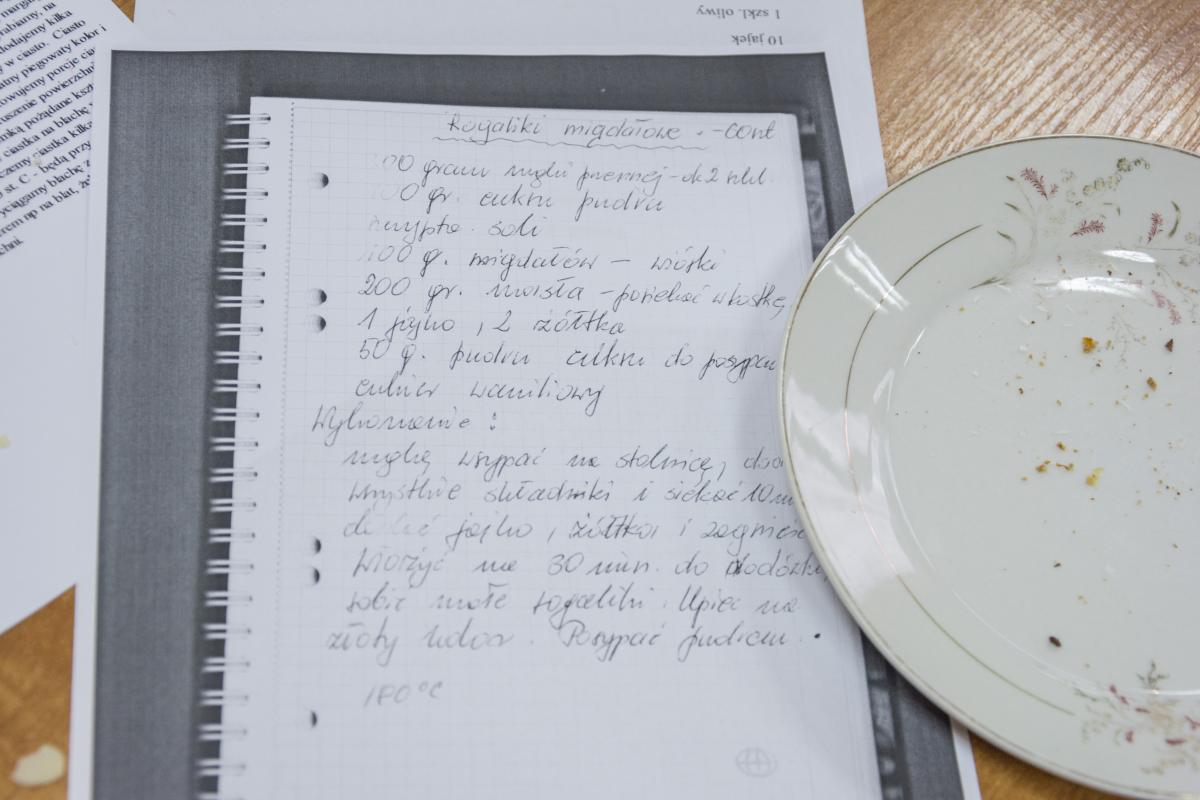 1 szkl. oliwy
10 jajek
rabiamy, na
dodajemy kilka
y w ciasto. Ciasto
atny piegowaty kolor i
owujemy porcję
uszenie powierzchn
mską pożądane
ciastka na blachę
czemy ciastka kilka
st. C - będą przy
yciągamy blachę z
rem np na blat,
chni.
Rogaliki migdałowe - cont
00 gram mąki pszennej - ok 2 szkl.
00 gr. cukru pudru
szypta soli
100 g. migdałów - wiórki
200 gr. masła - posiekać w kostkę
1 jajko, 2 żółtka
50 g. pudru cukru do posypan
cukier waniliowy
Wykonanie :
mąkę wsypać na stolnicę, doda
wszystkie składniki i siekać 10 m
dodać jajko, żółtka i zagnieść
włożyć na 30 min. do lodówki,
robić małe rogaliki. Upiec na
złoty kolor. Posypać pudrem.
180°C